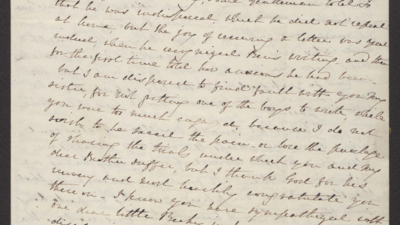 gentleman told
that he was indisposed, which he did not
at home, but the joy of receiving a letter was great
indeed, when he recognized writing, and then
for the first time told how anxious he had been.
but I am disposed to find fault with you my
sister, for not getting one of the boys to write, while
you were too much, because I do not
wish to be the or lose the privilege
of sharing the trials under which you and my
dear Brother suffer, but I thank God for his
mercy and most heartily congratulate you
thereon. I know you have sympathized with
dear little